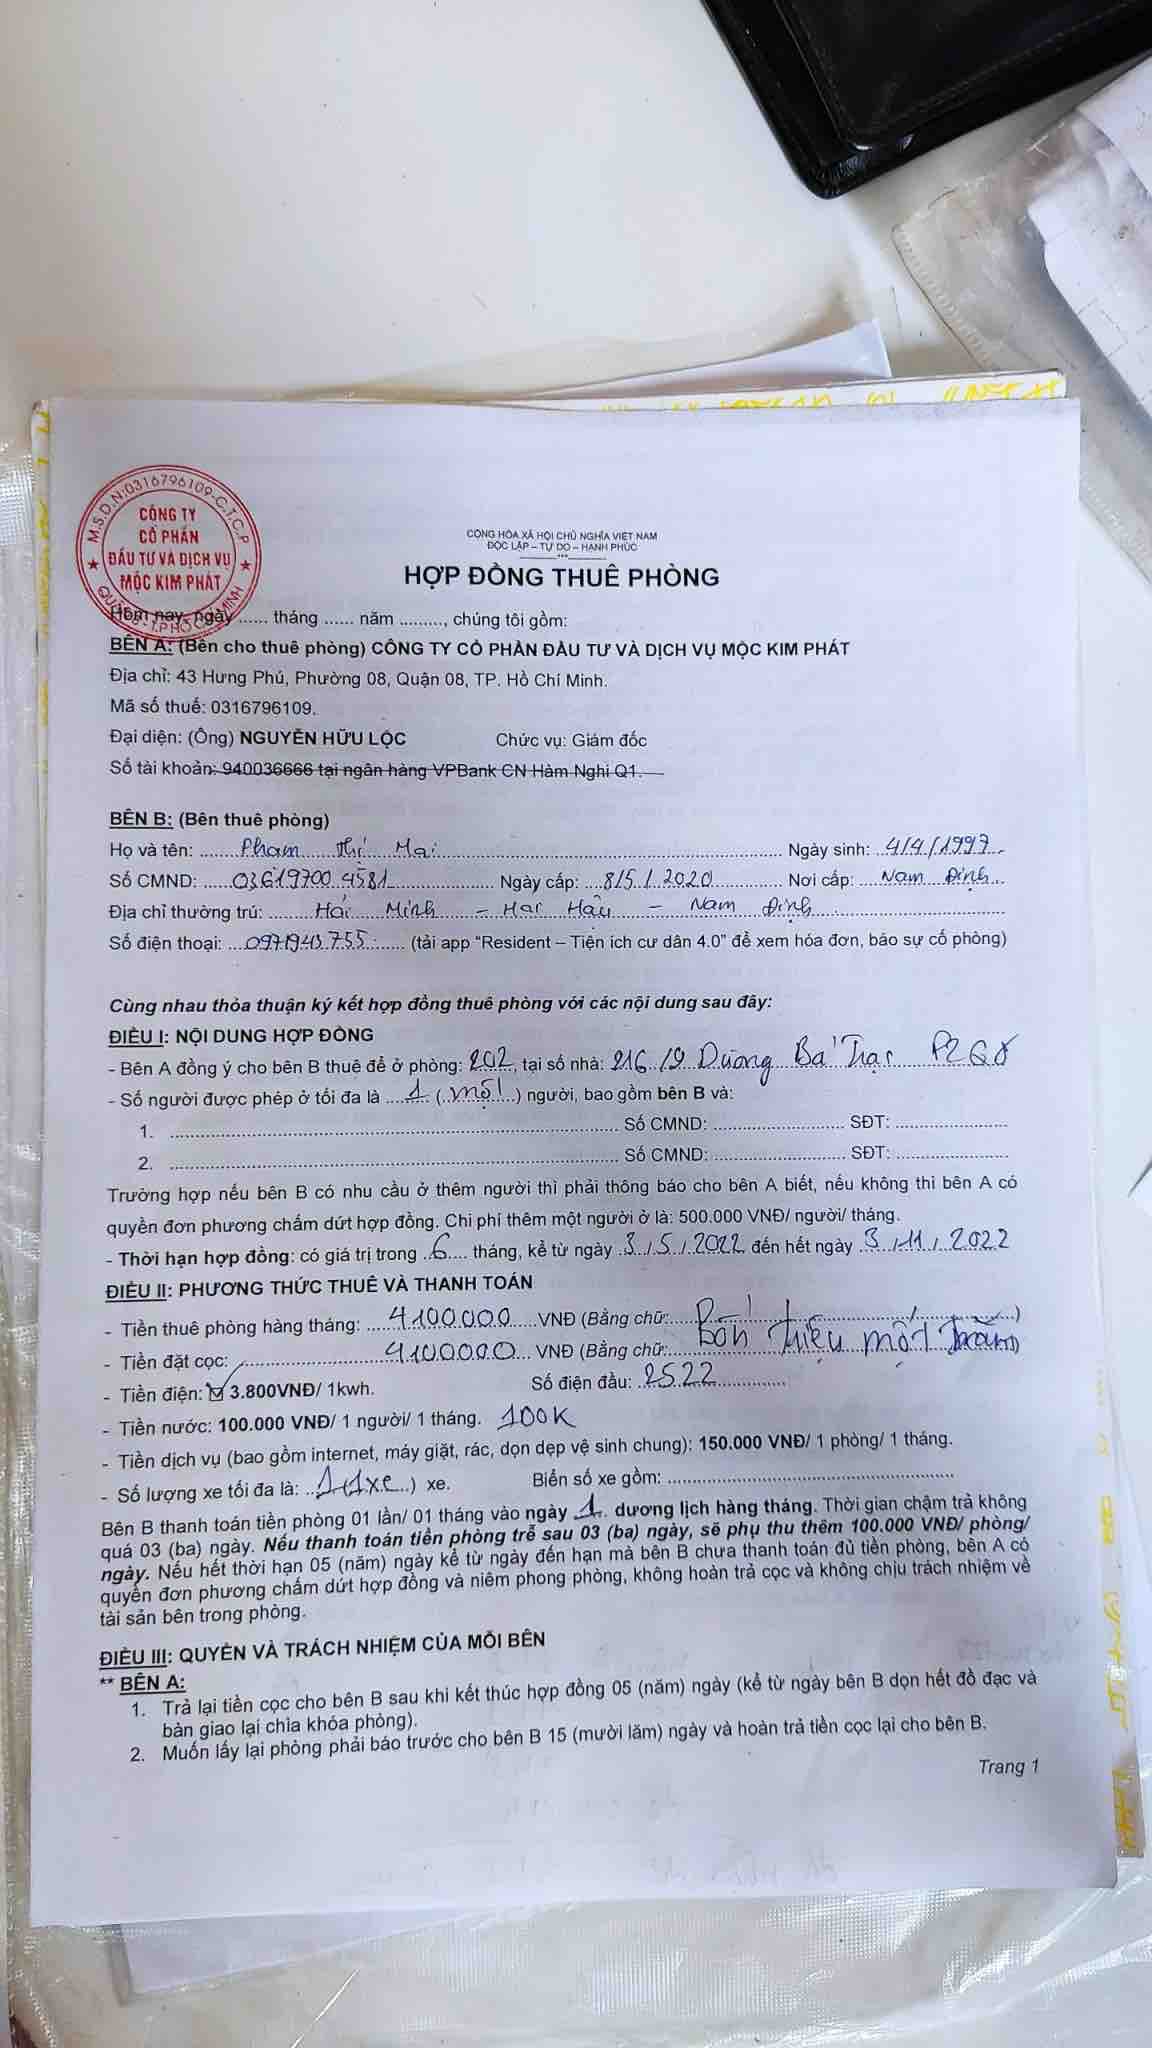 M.S.D.N:0316796109-C.T.C.P
CÔNG TY
CỔ PHẦN
ĐẦU TƯ VÀ DỊCH VỤ
MỘC KIM PHÁT
CỘNG HÒA XÃ HỘI CHỦ NGHĨA VIỆT NAM
ĐỘC LẬP – TỰ DO – HẠNH PHÚC
HỢP ĐỒNG THUÊ PHÒNG
Hôm nay, ngày ...... tháng ...... năm ........., chúng tôi gồm:
BÊN A: (Bên cho thuê phòng) CÔNG TY CỔ PHẦN ĐẦU TƯ VÀ DỊCH VỤ MỘC KIM PHÁT
Địa chỉ: 43 Hưng Phú, Phường 08, Quận 08, TP. Hồ Chí Minh.
Mã số thuế: 0316796109.
Đại diện: (Ông) NGUYỄN HỮU LỘC Chức vụ: Giám đốc
Số tài khoản: 940036666 tại ngân hàng VPBank CN Hàm Nghi Q1.
BÊN B: (Bên thuê phòng)
Họ và tên: Phạm thị Mai Ngày sinh: 4/4/1997
Số CMND: 036197004581 Ngày cấp: 8/5/2020 Nơi cấp: Nam Định
Địa chỉ thường trú: Hải Minh - Hải Hậu - Nam Định
Số điện thoại: 0971943755 (tải app “Resident – Tiện ích cư dân 4.0” để xem hóa đơn, báo sự cố phòng)
Cùng nhau thỏa thuận ký kết hợp đồng thuê phòng với các nội dung sau đây:
ĐIỀU I: NỘI DUNG HỢP ĐỒNG
- Bên A đồng ý cho bên B thuê để ở phòng: 202, tại số nhà: 216/9 Dương Bá Trạc P2 Q8
- Số người được phép ở tối đa là 1 (một) người, bao gồm bên B và:
1. Số CMND: SĐT:
2. Số CMND: SĐT:
Trường hợp nếu bên B có nhu cầu ở thêm người thì phải thông báo cho bên A biết, nếu không thì bên A có
quyền đơn phương chấm dứt hợp đồng. Chi phí thêm một người ở là: 500.000 VNĐ/ người/ tháng.
- Thời hạn hợp đồng: có giá trị trong 6 tháng, kể từ ngày 3/5/2022 đến hết ngày 3/11/2022
ĐIỀU II: PHƯƠNG THỨC THUÊ VÀ THANH TOÁN
- Tiền thuê phòng hàng tháng: 4100000 VNĐ (Bằng chữ: )
- Tiền đặt cọc: 4100000 VNĐ (Bằng chữ: Bốn triệu một trăm)
- Tiền điện: ☑ 3.800VNĐ/ 1kwh. Số điện đầu: 2522
- Tiền nước: 100.000 VNĐ/ 1 người/ 1 tháng. 100K
- Tiền dịch vụ (bao gồm internet, máy giặt, rác, dọn dẹp vệ sinh chung): 150.000 VNĐ/ 1 phòng/ 1 tháng.
- Số lượng xe tối đa là: 1 (1xe) xe. Biển số xe gồm:
Bên B thanh toán tiền phòng 01 lần/ 01 tháng vào ngày 1 dương lịch hàng tháng. Thời gian chậm trả không
quá 03 (ba) ngày. Nếu thanh toán tiền phòng trễ sau 03 (ba) ngày, sẽ phụ thu thêm 100.000 VNĐ/ phòng/
ngày. Nếu hết thời hạn 05 (năm) ngày kể từ ngày đến hạn mà bên B chưa thanh toán đủ tiền phòng, bên A có
quyền đơn phương chấm dứt hợp đồng và niêm phong phòng, không hoàn trả cọc và không chịu trách nhiệm về
tài sản bên trong phòng.
ĐIỀU III: QUYỀN VÀ TRÁCH NHIỆM CỦA MỖI BÊN
** BÊN A:
1. Trả lại tiền cọc cho bên B sau khi kết thúc hợp đồng 05 (năm) ngày (kể từ ngày bên B dọn hết đồ đạc và
bàn giao lại chìa khóa phòng).
2. Muốn lấy lại phòng phải báo trước cho bên B 15 (mười lăm) ngày và hoàn trả tiền cọc lại cho bên B.
Trang 1